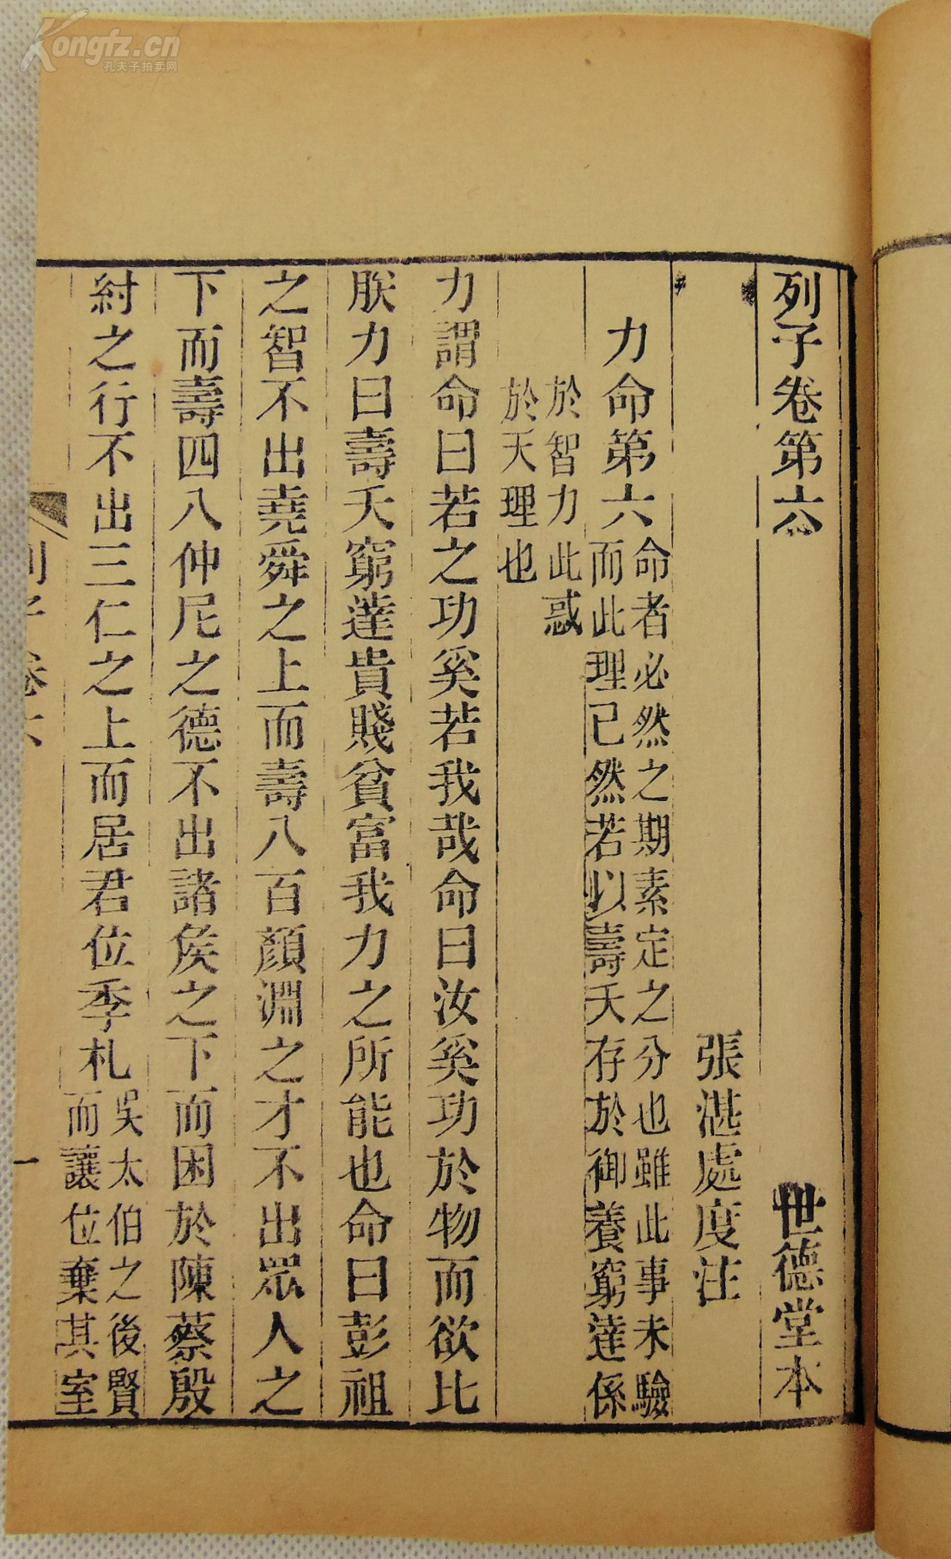 Kongfz.cn
孔夫子拍卖网
列子卷第六 世德堂本
張湛處度注
力命第六
命者必然之期素定之分也雖此事未驗
而此理已然若以壽夭存於御養窮達係
於智力此惑
於天理也
力謂命曰若之功奚若我哉命曰汝奚功於物而欲比
朕力曰壽夭窮達貴賤貧富我力之所能也命曰彭祖
之智不出堯舜之上而壽八百顏淵之才不出眾人之
下而壽四八仲尼之德不出諸矦之下而困於陳蔡殷
紂之行不出三仁之上而居君位季札
吳太伯之後賢
而讓位棄其室
列子卷六
一